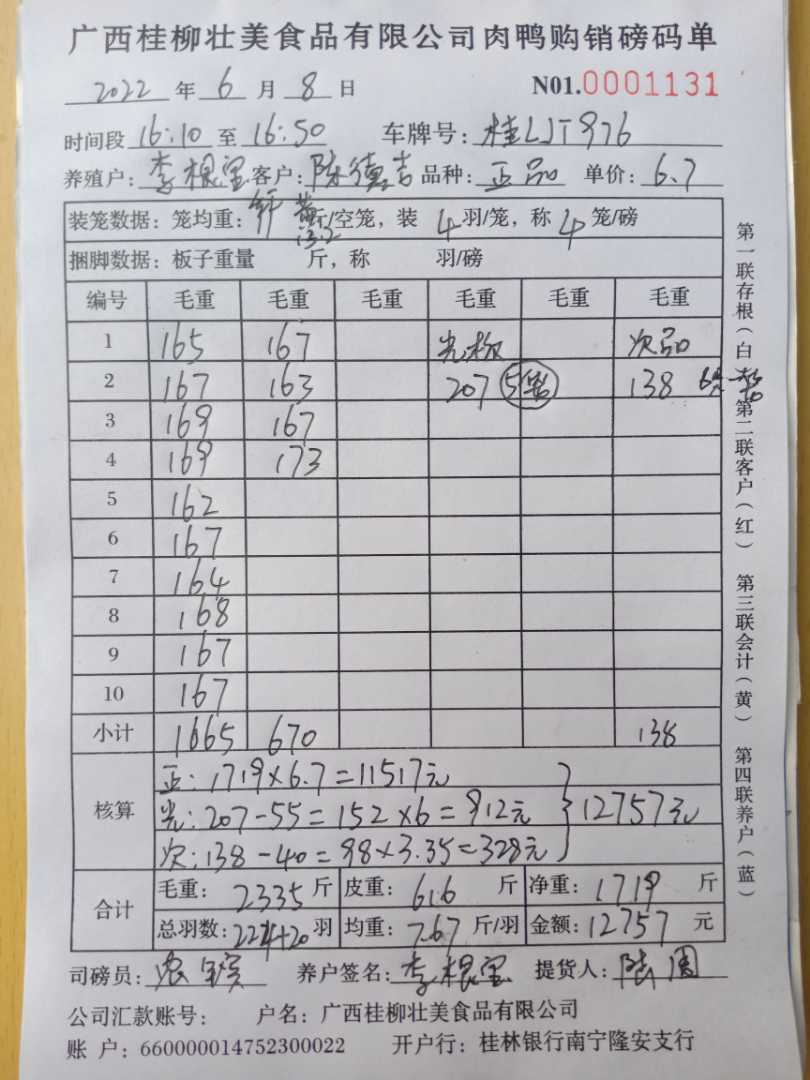 广西桂柳壮美食品有限公司肉鸭购销磅码单
2022 年 6 月 8 日 N01.0001131
时间段 16:10 至 16:50 车牌号: 桂LJT976
养殖户: 李根宝 客户: 陈德吉 品种: 正品 单价: 6.7
装笼数据: 笼均重: 斤/空笼, 装 4 羽/笼, 称 4 笼/磅
13.2
捆脚数据: 板子重量 斤, 称 羽/磅
编号 毛重 毛重 毛重 毛重 毛重 毛重
1 165 167 光板 次品
2 167 163 207 138
3 169 167
4 169 173
5 162
6 167
7 164
8 168
9 167
10 167
小计 1665 670 138
正: 1719×6.7=11517元
核算 光: 207-55=152×6=912元 } 12757元
次: 138-40=98×3.35=328元
合计 毛重: 2335 斤 皮重: 616 斤 净重: 1719 斤
总羽数: 224+20 羽 均重: 7.67 斤/羽 金额: 12757 元
司磅员: 养户签名: 李根宝 提货人: 陆周
公司汇款账号: 户名: 广西桂柳壮美食品有限公司
账 户: 660000014752300022 开户行: 桂林银行南宁隆安支行
第一联存根(白) 第二联客户(红) 第三联会计(黄) 第四联养户(蓝)